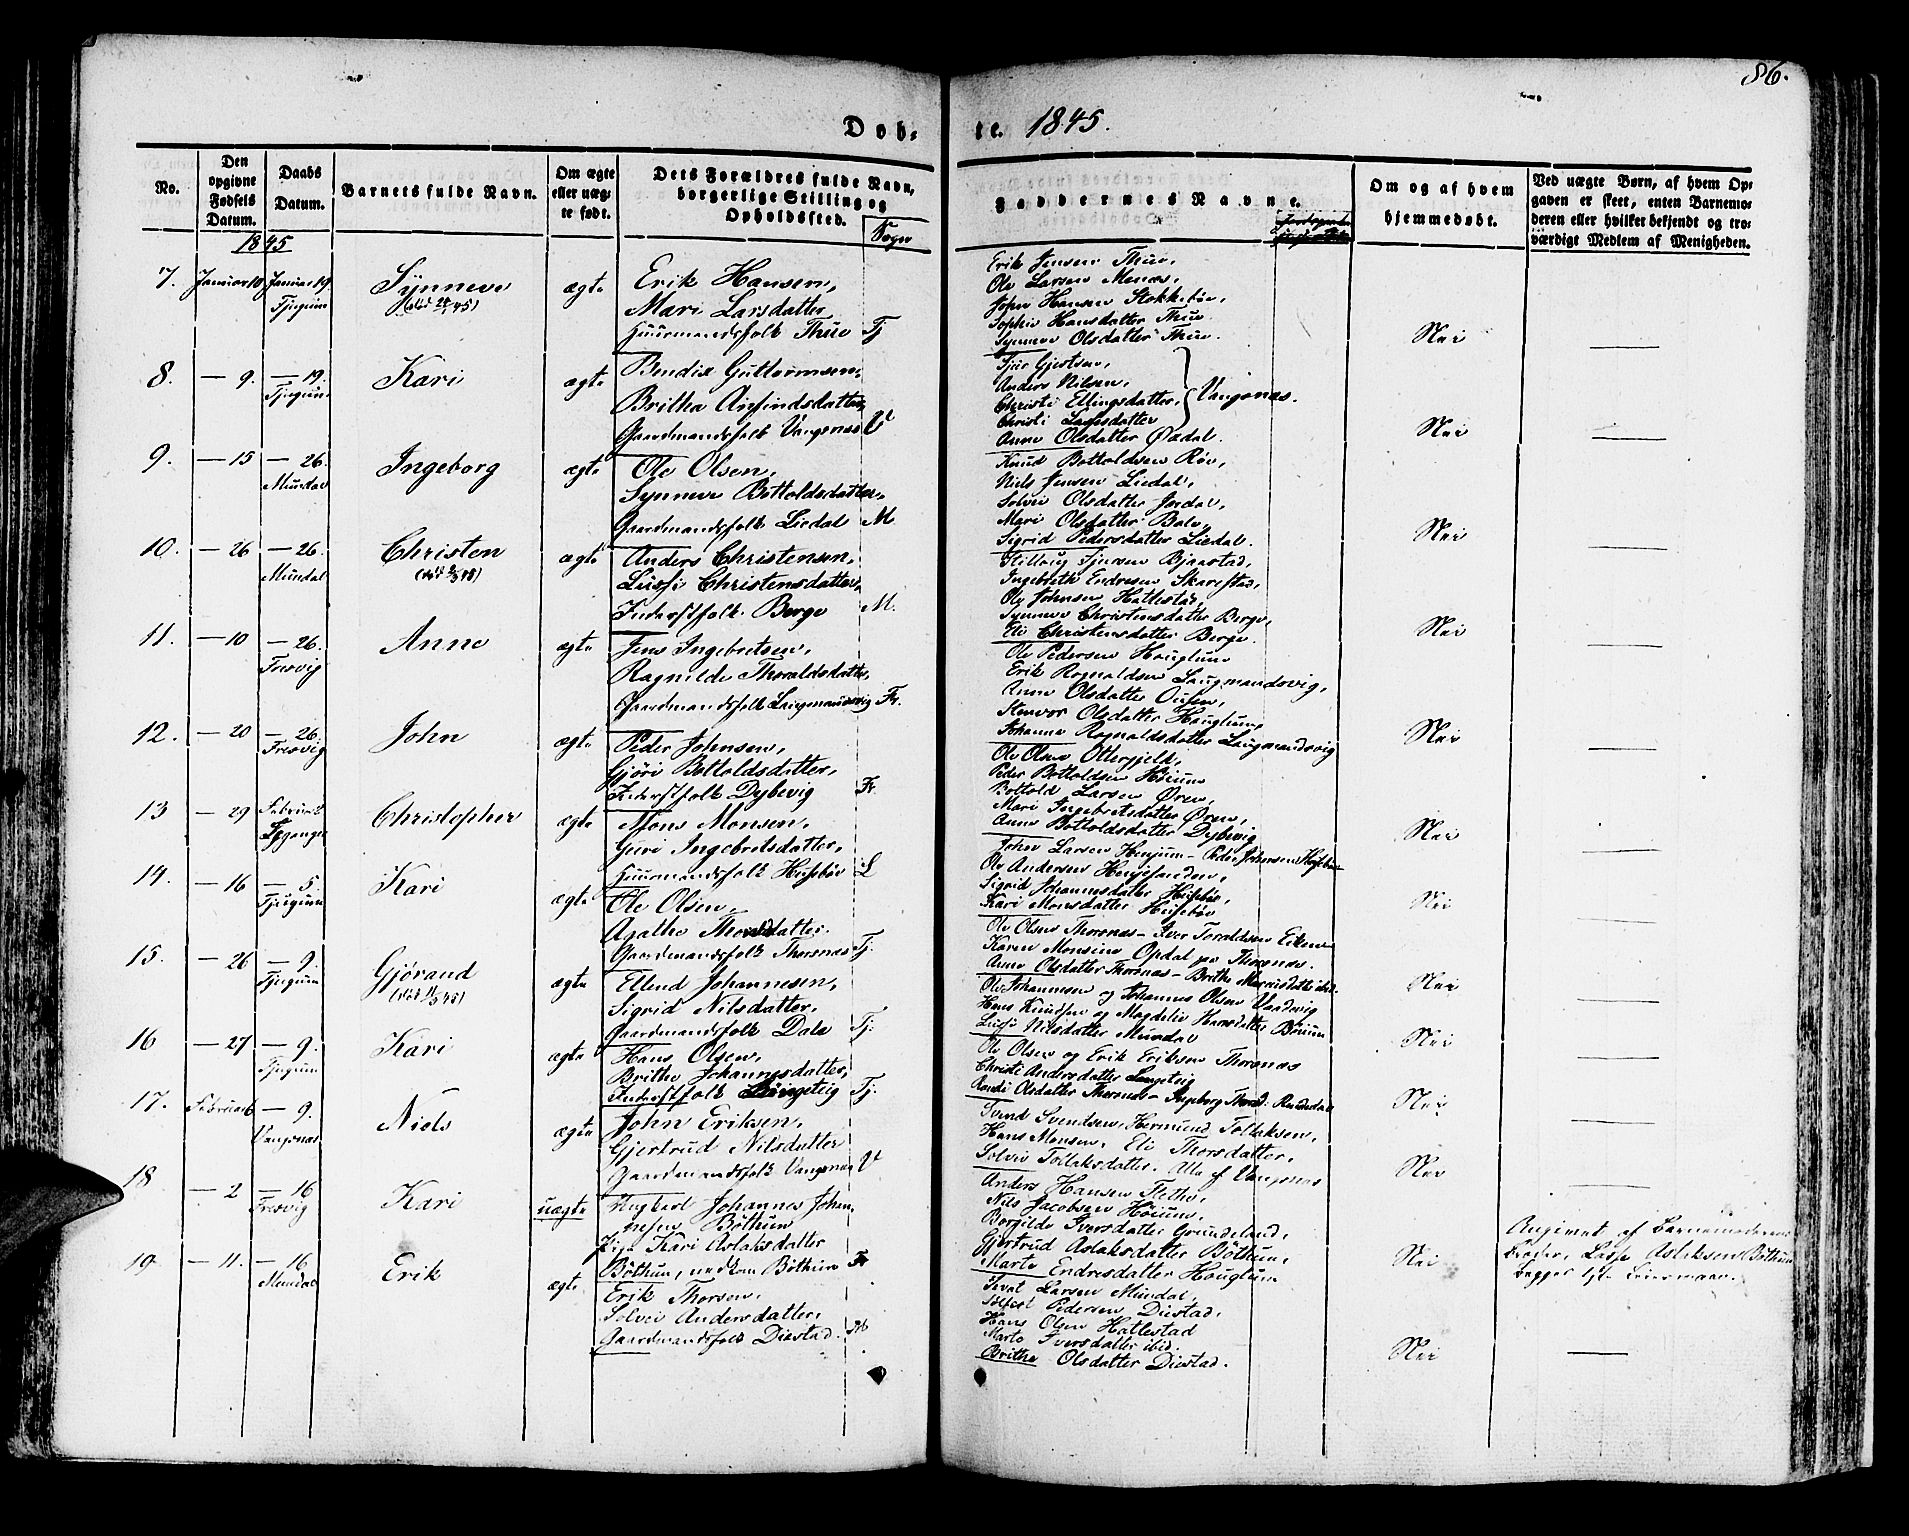 86.
Døb-
te. 1845.
No.
Den opgivne Fødsels Datum.
Daabs Datum.
Barnets fulde Navn.
Om ægte eller uægte født.
Dets Forældres fulde Navn, borgerlige Stilling og Opholdssted.
Sogn
Faddernes Navne.
Om og af hvem hjemmedøbt.
Ved uægte Børn, af hvem Opgaven er skeet, enten Barnemoderen eller hvilket bekjendt og troværdigt Medlem af Menigheden.
1845
7. Januar 10 Januar 19 Tjugum
Synneve
ægte
Erik Hansen,
Mari Larsdatter
Huusmandsfolk Thue Tj
Erik Jensen Thue,
Ole Larsen Menæs,
John Hansen Stokkebøe,
Sophie Hansdatter Thue.
Synneve Olsdatter Thue.
Nei
8. — 9. — 19. Tjugum
Kari
ægte
Bendix Guttormsen,
Britha Anfindsdatter,
Gaardmandsfolk Vangsnæs V
Anders Nilsen,
Christi Ellingsdatter, Vangsnæs.
Christi Larsdatter
Anne Olsdatter Ødal.
Nei
9. — 15 — 26. Mundal
Ingeborg
ægte
Ole Olsen,
Synneve Bottoldsdatter,
Gaardmandsfolk Liedal M.
Knud Bottoldsen Røe,
Niels Jensen Liedal,
Solvei Olsdatter Jordal,
Mari Olsdatter Bale,
Sigrid Pedersdatter Liedal.
Nei
10. — 26 — 26. Mundal
Christen
ægte
Anders Christensen,
Lussi Christensdatter,
Inderstfolk Berge M.
Ingebreth Endresen Skarestad,
Ole Johnsen Hatlestad,
Synneve Christensdatter Berge,
Eli Christensdatter Berge.
Nei
11. — 10 — 26. Fresvig
Anne
ægte
Jens Ingebretsen,
Ragnilde Thoraldsdatter,
Gaardmandsfolk Laugmandsvig Fr.
Ole Pedersen Hauglum
Erik Ragnaldsen Laugmandsvig,
Anne Olsdatter
Stenvor Olsdatter Hauglum,
Johanna Ragnaldsdatter Laugmandsvig
Nei
12. — 20 — 26 Fresvig
John
ægte
Peder Johnsen,
Gjøri Bottoldsdatter,
Inderstfolk Dybevig Fr.
Ole Olsen Ottergjeld,
Peder Bottoldsen Høium
Bottold Larsen Øren,
Mari Ingebretsdatter Øren,
Anne Bottoldsdatter Dybevig
Nei
13 — 29 Februar 2
Christopher
ægte
Mons Monsen,
Guri Ingebretsdatter,
Huusmandsfolk Husebøe L
John Larsen Henjum – Peder Johansen Husebøe
Ole Andersen Henjesanden,
Sigrid Johannesdatter Husebøe,
Kari Monsdatter Husebøe
Nei
14. — 16 — 5. Tjugum
Kari
ægte
Ole Olsen,
Agathe Thorsdatter.
Gaardmandsfolk Thorsnæs Tj.
Ole Olsen Thorsnæs – Iver Toraldsen Eikum
Karen Monsine Opdal paa Thorsnæs.
Anne Olsdatter Thorsnæs –
Nei
15. — 26 — 9. Tjugum
Gjørand
ægte
Ellend Johannesen,
Sigrid Nilsdatter.
Gaardmandsfolk Dale Tj.
Ole Johannesen og Johannes Olsen
Hans Knudsen og Magdeli Hansdatter Bøium
Lussi Nilsdatter Mundal
Nei
16 — 27 — 9. Tjugum
Kari
ægte
Hans Olsen,
Brithe Johannesdatter,
Inderstfolk Tj.
Ole Olsen og Erik Eriksen Thorsnæs
Christi Andersdatter Langeteig
Randi Olsdatter Thorsnæs –
Nei
17. Februar 6 — 9. Vangsnæs
Niels
ægte
John Eriksen,
Gjertrud Nilsdatter
Gaardmandsfolk Vangsnæs V
Svend Svendsen, Hermund Tollaksen,
Hans Monsen, Eli Thorsdatter,
Solvei Tollaksdatter. Alle af Vangsnæs
Nei
18 — 2 — 16 Fresvig
Kari
uægte
Ungkarl Johannes Johannesen Bøthun
Pige Kari Aslaksdatter
Bøthun, Fr
Anders Hansen Flethe,
Nils Jacobsen Høium,
Borgilde Iversdatter Grundeland,
Gjertrud Aslaksdatter Bøthun,
Marte Endresdatter Hauglum
Nei
Angivet af Barnemoderens
Broder, Lasse Aslaksen Bøthun
begges 1ste Leiermaal.
19. — 11. — 16 Mundal
Erik
ægte
Erik Thorsen,
Solvei Andersdatter,
Gaardmandsfolk Distad. M
Larsen Mundal,
Pedersen Distad,
Hans Olsen Hatlestad
Marte Iversdatter ibid.
Brithe Olsdatter Distad.
Nei